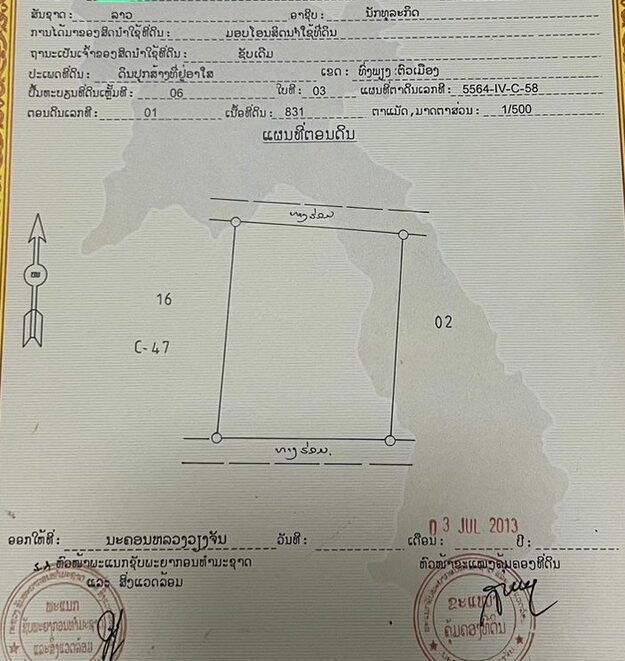 ສັນຊາດ: ລາວ ອາຊີບ: ນັກທຸລະກິດ
ການໄດ້ມາຂອງສິດນຳໃຊ້ທີ່ດິນ: ມອບໂອນສິດນຳໃຊ້ທີ່ດິນ
ຖານະເປັນເຈົ້າຂອງສິດນຳໃຊ້ທີ່ດິນ: ຊັບເດີມ
ປະເພດທີ່ດິນ: ດິນປຸກສ້າງທີ່ຢູ່ອາໃສ ເຂດ: ທົ່ງພຽງ:ຕົວເມືອງ
ປຶ້ມທະບຽນທີ່ດິນເຫຼັ້ມທີ: 06 ໃບທີ: 03 ແຜນທີ່ຕາດິນເລກທີ: 5564-IV-C-58
ຕອນດິນເລກທີ: 01 ເນື້ອທີ່ດິນ: 831 ຕາແມັດ, ມາດຕາສ່ວນ: 1/500
ແຜນທີ່ຕອນດິນ
ທາງຮ່ອມ
ໜ
16
02
C-47
ທາງຮ່ອມ.
03 JUL 2013
ອອກໃຫ້ທີ່: ນະຄອນຫລວງວຽງຈັນ ວັນທີ: ເດືອນ: ປີ:
ຫົວໜ້າພະແນກຊັບພະຍາກອນທຳມະຊາດ ຫົວໜ້າຂະແໜງຄຸ້ມຄອງທີ່ດິນ
ແລະ ສິ່ງແວດລ້ອມ
ພະແນກ
ຊັບພະຍາກອນທຳມະຊາດ
ແລະສິ່ງແວດລ້ອມ
ຂະແໜງ
ຄຸ້ມຄອງທີ່ດິນ